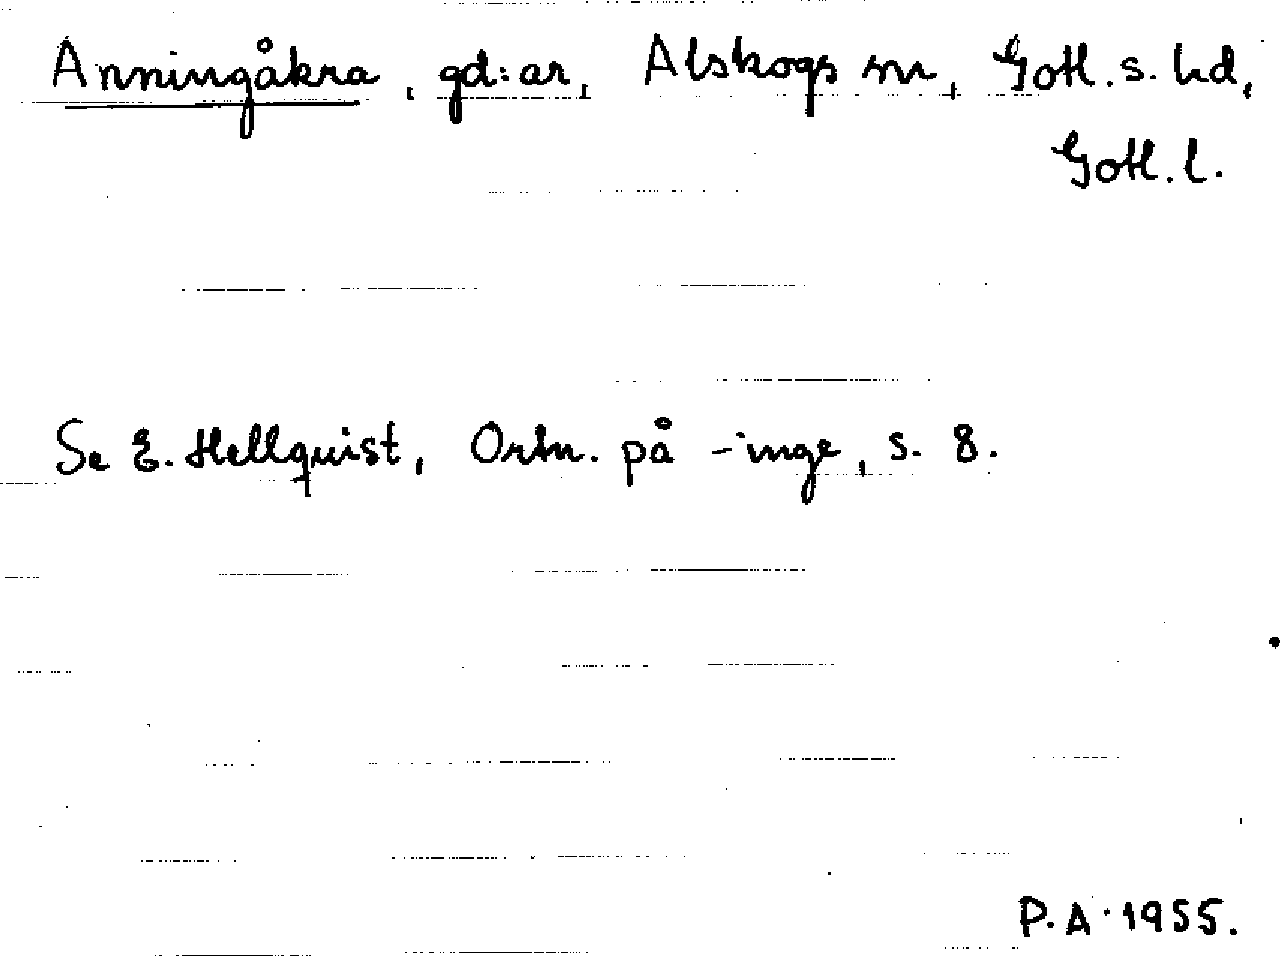 Anningåkra, gd:ar, Alskogs sn, Gotl. s. hd,
Gotl. l.
Se E. Hellquist, Ortn. på -inge, s. 8.
P.A. 1955.